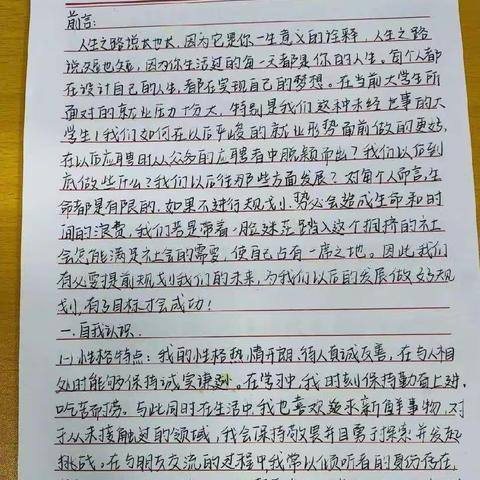 前言:
人生之路说长也长,因为它是你一生意义的诠释,人生之路
说短也短,因为你生活过的每一天都是你的人生。每个人都
在设计自己的人生,都在实现自己的梦想。在当前大学生所
面对的就业压力十分大,特别是我们这种未经世事的大
学生!我们如何在以后严峻的就业形势面前做的更好,
在以后应聘时从众多的应聘者中脱颖而出?我们以后到
底做些什么?我们以后往那些方面发展?对每个人而言,生
命都是有限的,如果不进行规划,势必会造成生命和时
间的浪费,我们若是带着一脸茫茫踏入这个拥挤的社
会怎能满足社会的需要,使自己占有一席之地。因此,我们
有必要提前规划我们的未来,为我们以后的发展做好规
划,有了目标才会成功!
一.自我认识.
(一)性格特点:我的性格热情开朗、待人真诚友善,在与人相
处时能够保持诚实谦逊。在学习中,我时刻保持勤奋上进,
吃苦耐劳。与此同时在生活中,我也喜欢追求新鲜事物,对
于从未接触过的领域,我会保持敬畏并且勇于探索并发起
挑战。在与朋友交流的过程中我常以倾听者的身份存在,